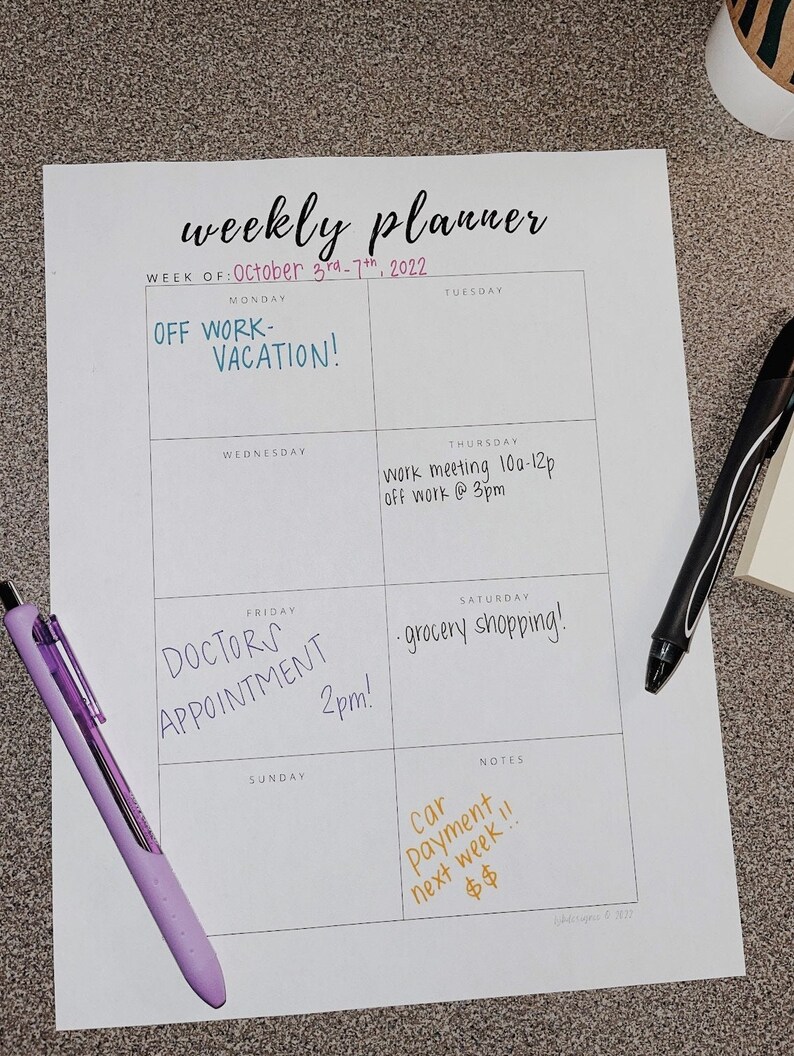 weekly planner
WEEK OF: October 3rd-7th, 2022
MONDAY
OFF WORK-
VACATION!
TUESDAY
WEDNESDAY
THURSDAY
work meeting 10a-12p
off work @ 3pm
FRIDAY
DOCTORS
APPOINTMENT
2pm!
SATURDAY
· grocery shopping!
SUNDAY
NOTES
car
payment
next week!!
$$
© 2022